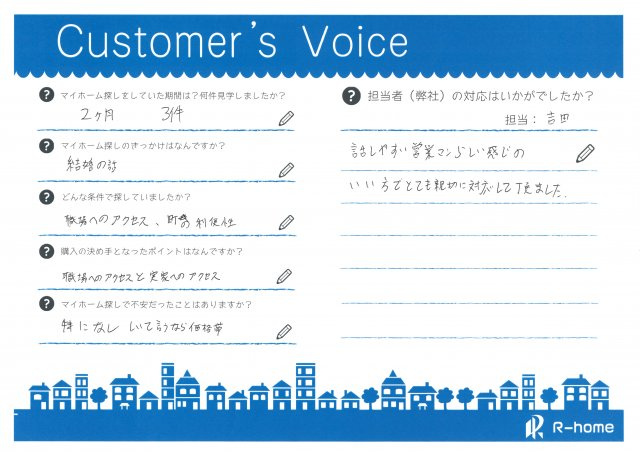 Customer's Voice
? マイホーム探しをしていた期間は？何件見学しましたか？
2ヶ月 3件
? マイホーム探しのきっかけはなんですか？
結婚の話
? どんな条件で探していましたか？
職場へのアクセス、町の利便性
? 購入の決め手となったポイントはなんですか？
職場へのアクセスと実家へのアクセス
? マイホーム探しで不安だったことはありますか？
特になし しいて言うなら価格帯
? 担当者（弊社）の対応はいかがでしたか？
担当：吉田
話しやすい営業マンらしい感じの
いい方でとても親切に対応して頂きました。
R-home